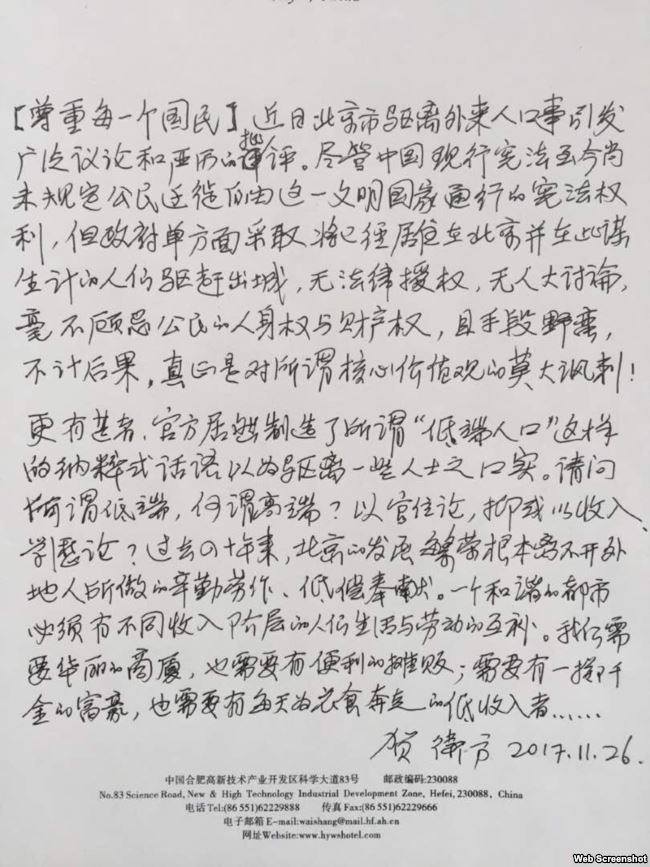 [尊重每一个国民] 近日北京市驱离外来人口事引发
广泛议论和严厉的批评。尽管中国现行宪法至今尚
未规定公民迁徙自由这一文明国家通行的宪法权
利，但政府单方面采取将已经居住在北京并在此谋
生计的人们驱赶出城，无法律授权，无人大讨论，
毫不顾忌公民的人身权与财产权，且手段野蛮，
不计后果，真正是对所谓核心价值观的莫大讽刺！
更有甚者，官方居然制造了所谓“低端人口”这样
的纳粹式话语以为驱离一些人士之口实。请问
何谓低端，何谓高端？以官位论，抑或以收入、
学历论？过去四十年来，北京的发展繁荣根本离不开外
地人所做的辛勤劳作、低偿奉献。一个和谐的都市
必须有不同收入阶层的人们生活与劳动的互补。我们需
要华丽的商厦，也需要有便利的摊贩；需要有一掷千
金的富豪，也需要有每天为衣食奔走的低收入者……
贺卫方 2017.11.26.
中国合肥高新技术产业开发区科学大道83号 邮政编码:230088
No.83 Science Road, New & High Technology Industrial Development Zone, Hefei, 230088, China
电话Tel:(86 551)62229888 传真Fax:(86 551)62229666
电子邮箱E-mail:waishang@mail.hf.ah.cn
网址Website:www.hywshotel.com
Web Screenshot